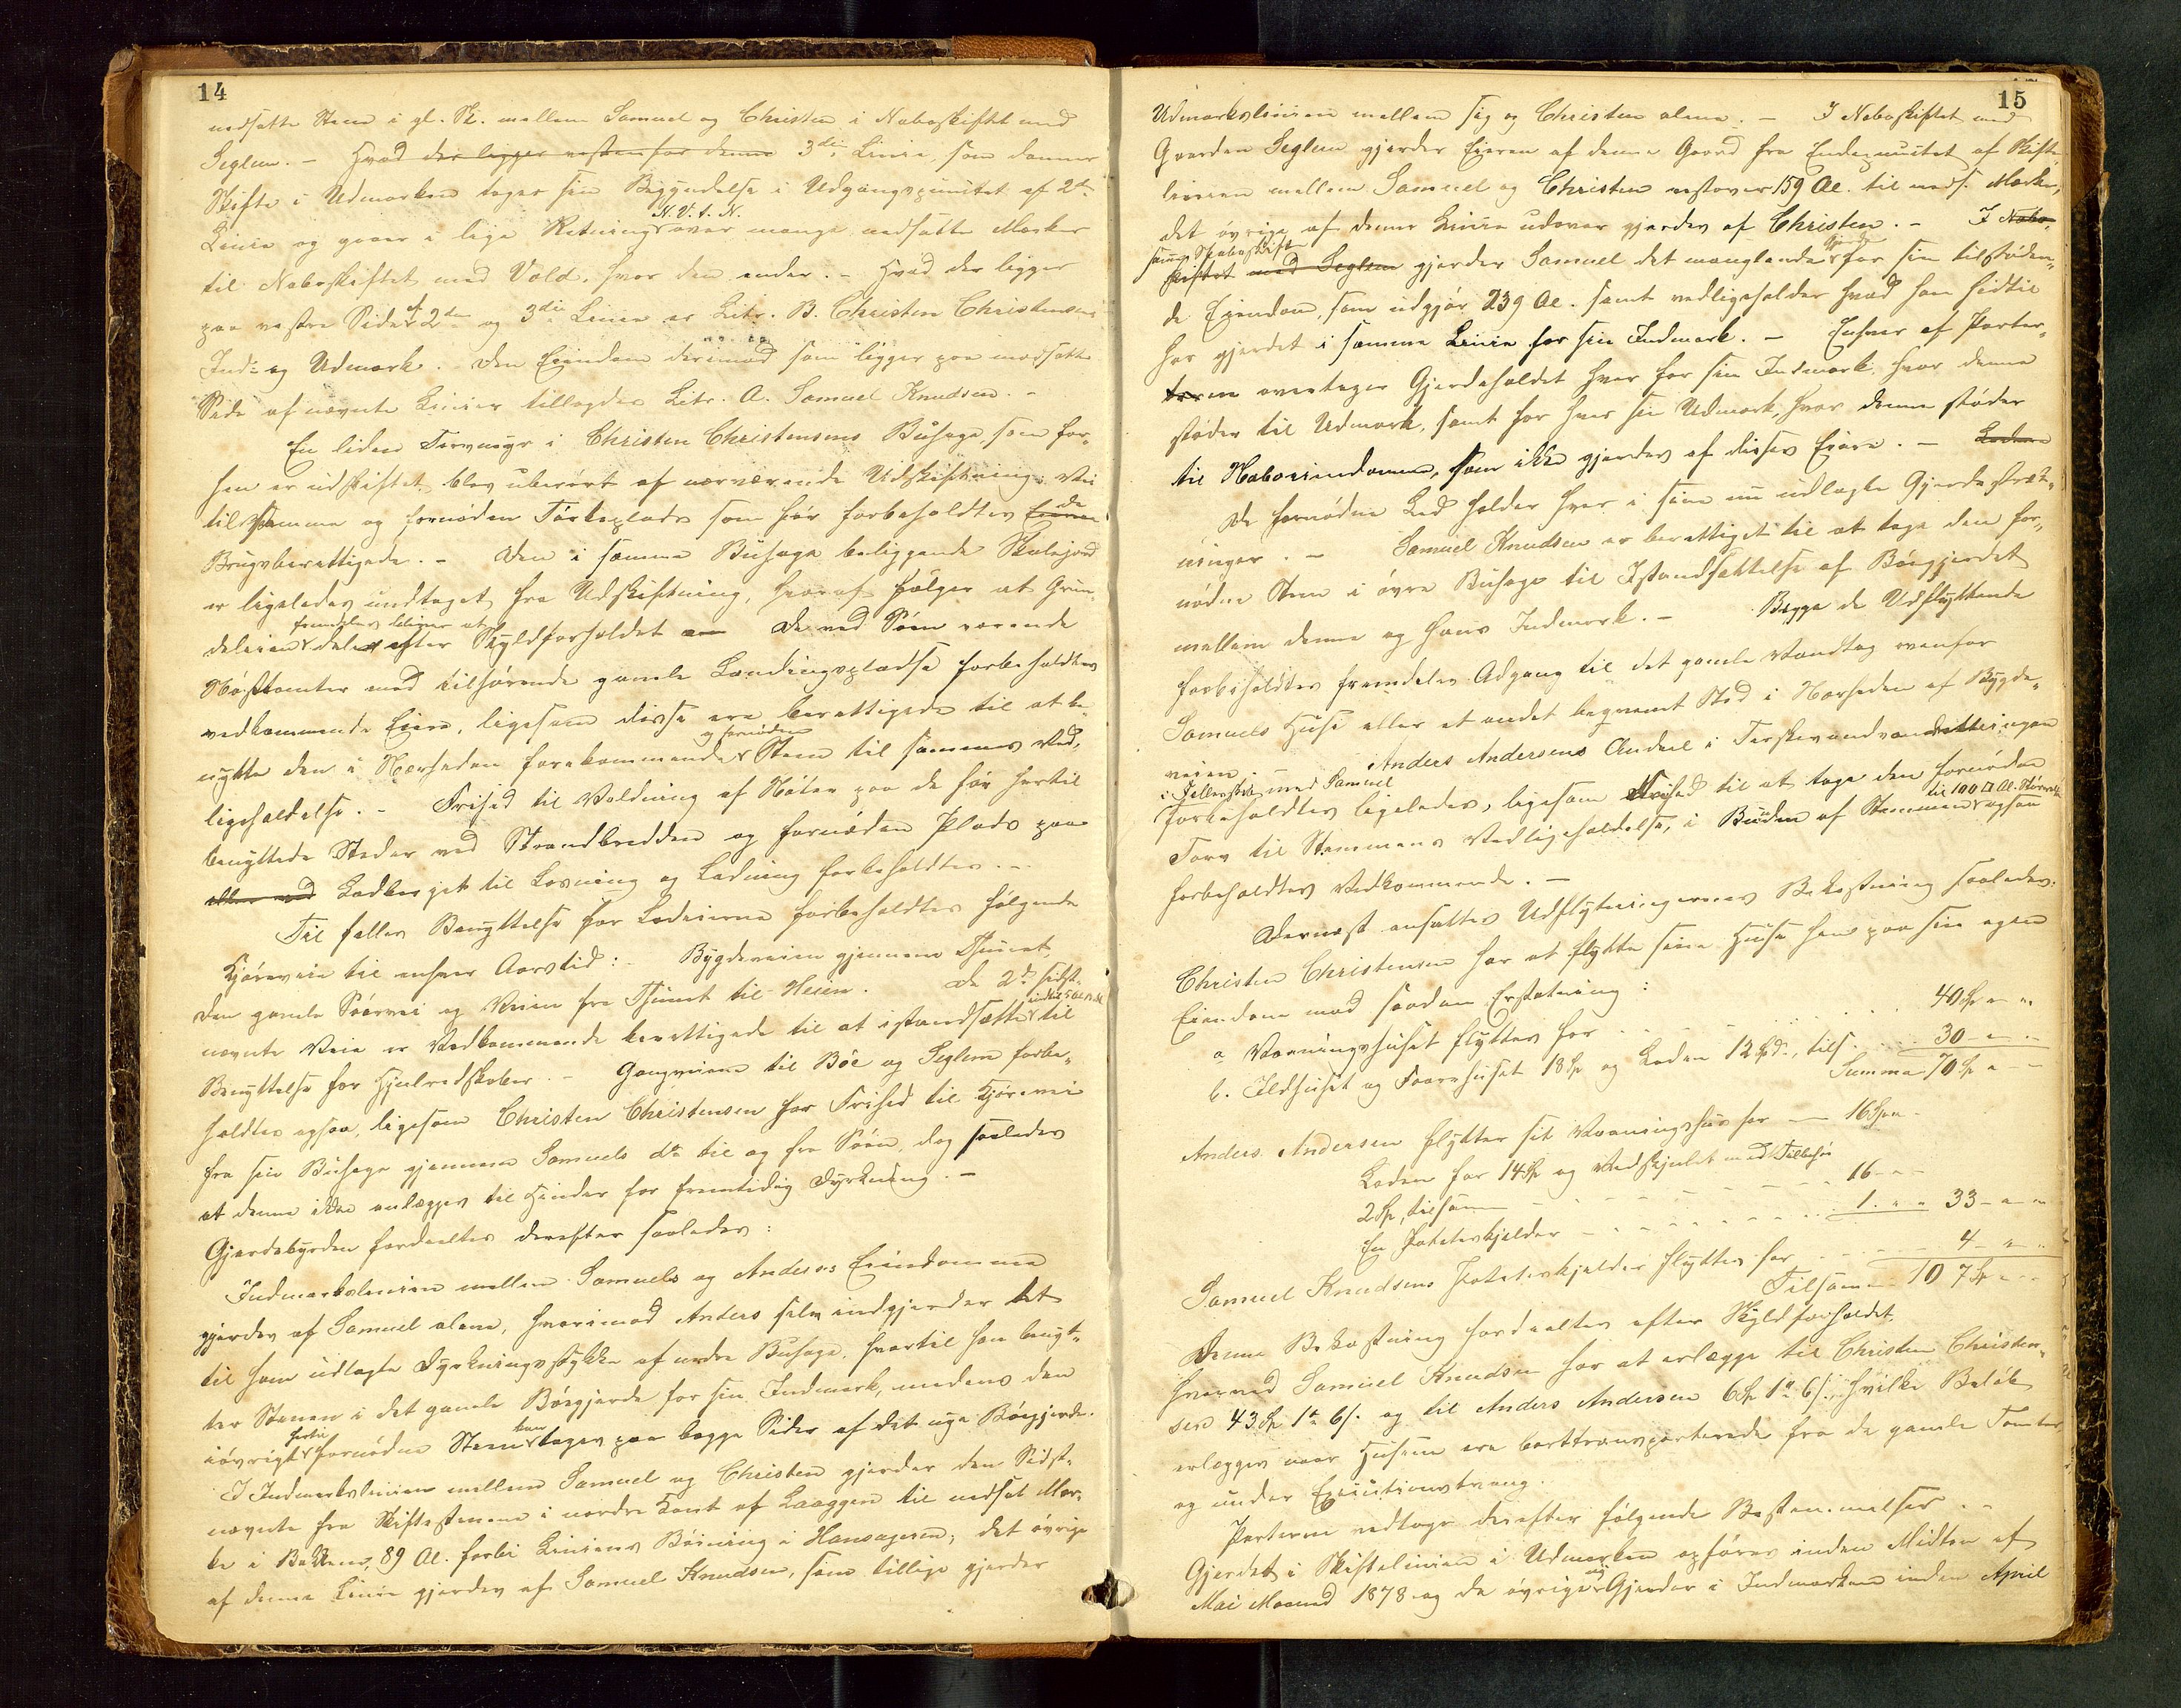 14
nedsatte Stene i gl. Sk. mellem Samuel og Christen i Naboskiftet med
Seglem. – Hvad der ligger vestenfor denne 3die Linie, som danner
Skifte i Udmarken tager sin Begyndelse i Udgangspunktet af 2den
Linie og gaaer i lige Retning N.V.t.N. over mange nedsatte Mærker
til Naboskiftet med Vold, hvor den ender. – Hvad der ligger
paa vestre Side af 2den og 3die Linie er Litr. B. Christen Christensens
Ind- og Udmark. Den Eiendom derimod som ligger paa modsatte
Side af nævnte Linier tillagdes Litr. A. Samuel Knudsen. –
En liden Torvmyr i Christen Christensens Buhage, som for-
hen er udskiftet, blev uberørt af nærværende Udskiftning. Vei
til samme og fornøden Tørkeplads som før forbeholdtes Eierne de
Brugsberettigede. – Den i samme Buhage beliggende Skolejord
er ligeledes undtaget fra Udskiftning, hvoraf følger at Grun-
deleien fremdeles bliver at dele efter Skyldforholdet De ved Søen værende
Nøsttomter med tilhørende gamle Landingspladse forbeholdtes
vedkommende Eiere, ligesom disse ere berettigede til at be-
nytte den i Nærheden forekommende og fornødne Steen til sammes Ved-
ligeholdelse. – Frihed til Voldning af Nøter paa de før hertil
benyttede Steder ved Strandbredden og fornøden Plads paa
eller ved Ladberget til Losning og Ladning forbeholdtes. –
Til fælles Benyttelse for Lodeierne forbeholdtes følgende
Kjøreveie til enhver Aarstid: – Bygdeveien gjennem Thunet,
den gamle Søevei og Veien fra Thunet til Heien. De 2de sidst-
nævnte Veie er Vedkommende berettigede til at istandsætte indtil 5 Al. Br. til
Benyttelse for Hjulredskaber. – Gangveiene til Böe og Seglem forbe-
holdtes ogsaa, ligesom Christen Christensen har Frihed til Kjørevei
fra sin Buhage gjennem Samuels do til og fra Søen, dog saaledes
at denne ikke anlægges til Hinder for fremtidig Dyrkning. –
Gjerdebyrden fordeeltes derefter saaledes:
Indmarkslinien mellem Samuels og Anders's Eiendomme
gjerdes af Samuel alene, hvorimod Anders selv indgjerder det
til ham udlagte Dyrkningsstykke af nedre Buhage, hvortil han benyt-
ter Stenen i det gamle Böegjerde for sin Indmark, medens den
iøvrigt hertil fornødne Steen kan tages paa begge Sider af det nye Böegjerde.
I Indmarkslinien mellem Samuel og Christen gjerder den Sidst-
nævnte fra Skiftestenene i nordre Kant af Laaggen til nedsat Mær-
ke i Bakken, 89 Al. forbi Liniens Böining i Hansageren; det øvrige
af denne Linie gjerdes af Samuel Knudsen, som tillige gjerder
15
Udmarkslinien mellem sig og Christen alene. – I Naboskiftet med
Gaarden Seglem gjerder Eieren af denne Gaard fra Endepunktet af Skifte-
linien mellem Samuel og Christen vestover 159 Al. til neds. Mærke,
det øvrige af denne Linie udover gjerdes af Christen. – I Nabo-
samme Naboskift
skiftet med Seglem gjerder Samuel det manglende Gjerde for sin tilstøden-
de Eiendom, som udgjør 239 Al. samt vedligeholder hvad han hidtil
har gjerdet i samme Linie for sin Indmark. – Enhver af Parter-
terne overtager Gjerdeholdet hver for sin Indmark, hvor denne
støder til Udmark, samt for hver sin Udmark, hvor denne støder
til Naboeiendomme, som ikke gjerdes af disses Eiere. –
De fornødne Led holder hver i sine nu udlagte Gjerdestræk-
ninger. – Samuel Knudsen er berettiget til at tage den for-
nødne Steen i øvre Buhage til Istandsættelse af Böegjerdet
mellem denne og hans Indmark. – Begge de Udflyttende
forbeholdtes fremdeles Adgang til det gamle Vandtag ovenfor
Samuels Huse eller et andet beqvemt Sted i Nærheden af Bygde-
veien. – Anders Andersens Andeel i Terskevandrettningen
i Fælleskab med Samuel
forbeholdtes ligeledes, ligesom Frihed til at tage den fornødne
Torv til Stemmens Vedligeholdelse, i Bunden af Stemmen til 100 □ Al. Størrelse ogsaa
forbeholdtes Vedkommende. –
Dernæst ansattes Udflytningernes Bekostning saaledes:
Christen Christensen har at flytte sine Huse hen paa sin egen
Eiendom mod saadan Erstatning:
a Vaaningshuset flyttes for . . . . . . 40 Sp " "
b. Ildhuset og Faarehuset 18 Sp og Laden 12 Spd., tils. . . . 30 – " –
Summa 70 Sp " –
Anders Andersen flytter sit Vaaningshus for — 16 Sp " –
Laden for 14 Sp og Vedskjulet med Tilbehør
2 Sp, tilsam – – – – – – 16 – " –
En Poteteskjelder – – – – – – 1. " " 33 – " –
Samuel Knudsens Poteteskjelder flyttes for . . . . 4 – " –
Tilsam 107 Sp " –
Denne Bekostning fordeeltes efter Skyldforholdet,
hvorved Samuel Knudsen har at erlægge til Christen Christen-
sen 43 Sp 1 " 6/. og til Anders Andersen 6 Sp 1 " 6/. hvilke Beløb
erlægges naar Husene ere borttransporterede fra de gamle Tomter
og under Executionstvang.
Parterne vedtage derefter følgende Bestemmelser. –
Gjerdet i Skiftelinien i Udmarken opføres inden Midten af
Mai Maaned 1878 og de øvrige nye Gjerder i Indmarken inden April